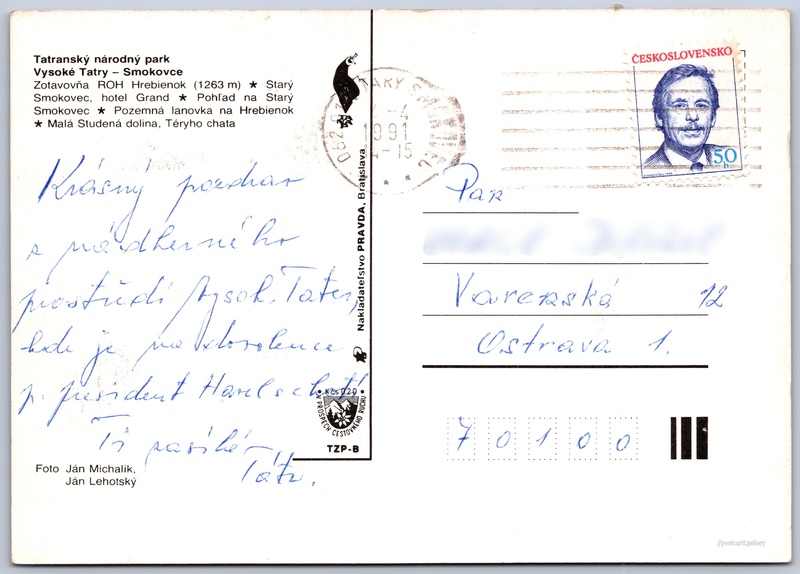 Tatranský národný park
Vysoké Tatry – Smokovce
Zotavovňa ROH Hrebienok (1263 m) ★ Starý
Smokovec, hotel Grand ★ Pohľad na Starý
Smokovec ★ Pozemná lanovka na Hrebienok
★ Malá Studená dolina, Téryho chata
Krásný pozdrav
z nádherného
prostředí Vysok. Tater,
kde je na dovolence
p. president Havel s chotí
Ti posílá
Foto Ján Michalík,
Ján Lehotský
Nakladateľstvo PRAVDA, Bratislava
Kčs 0,20
V PROSPECH CESTOVNÉHO RUCHU
TZP-B
STARÝ
1991
ČESKOSLOVENSKO
50
h
Pan
Varenská 12
Ostrava 1.
70100
postcard.gallery